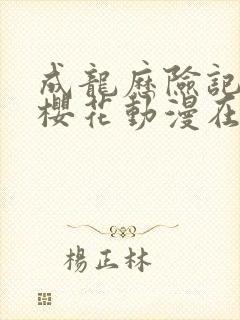 成龍歷險記
櫻花動漫在
楊正林